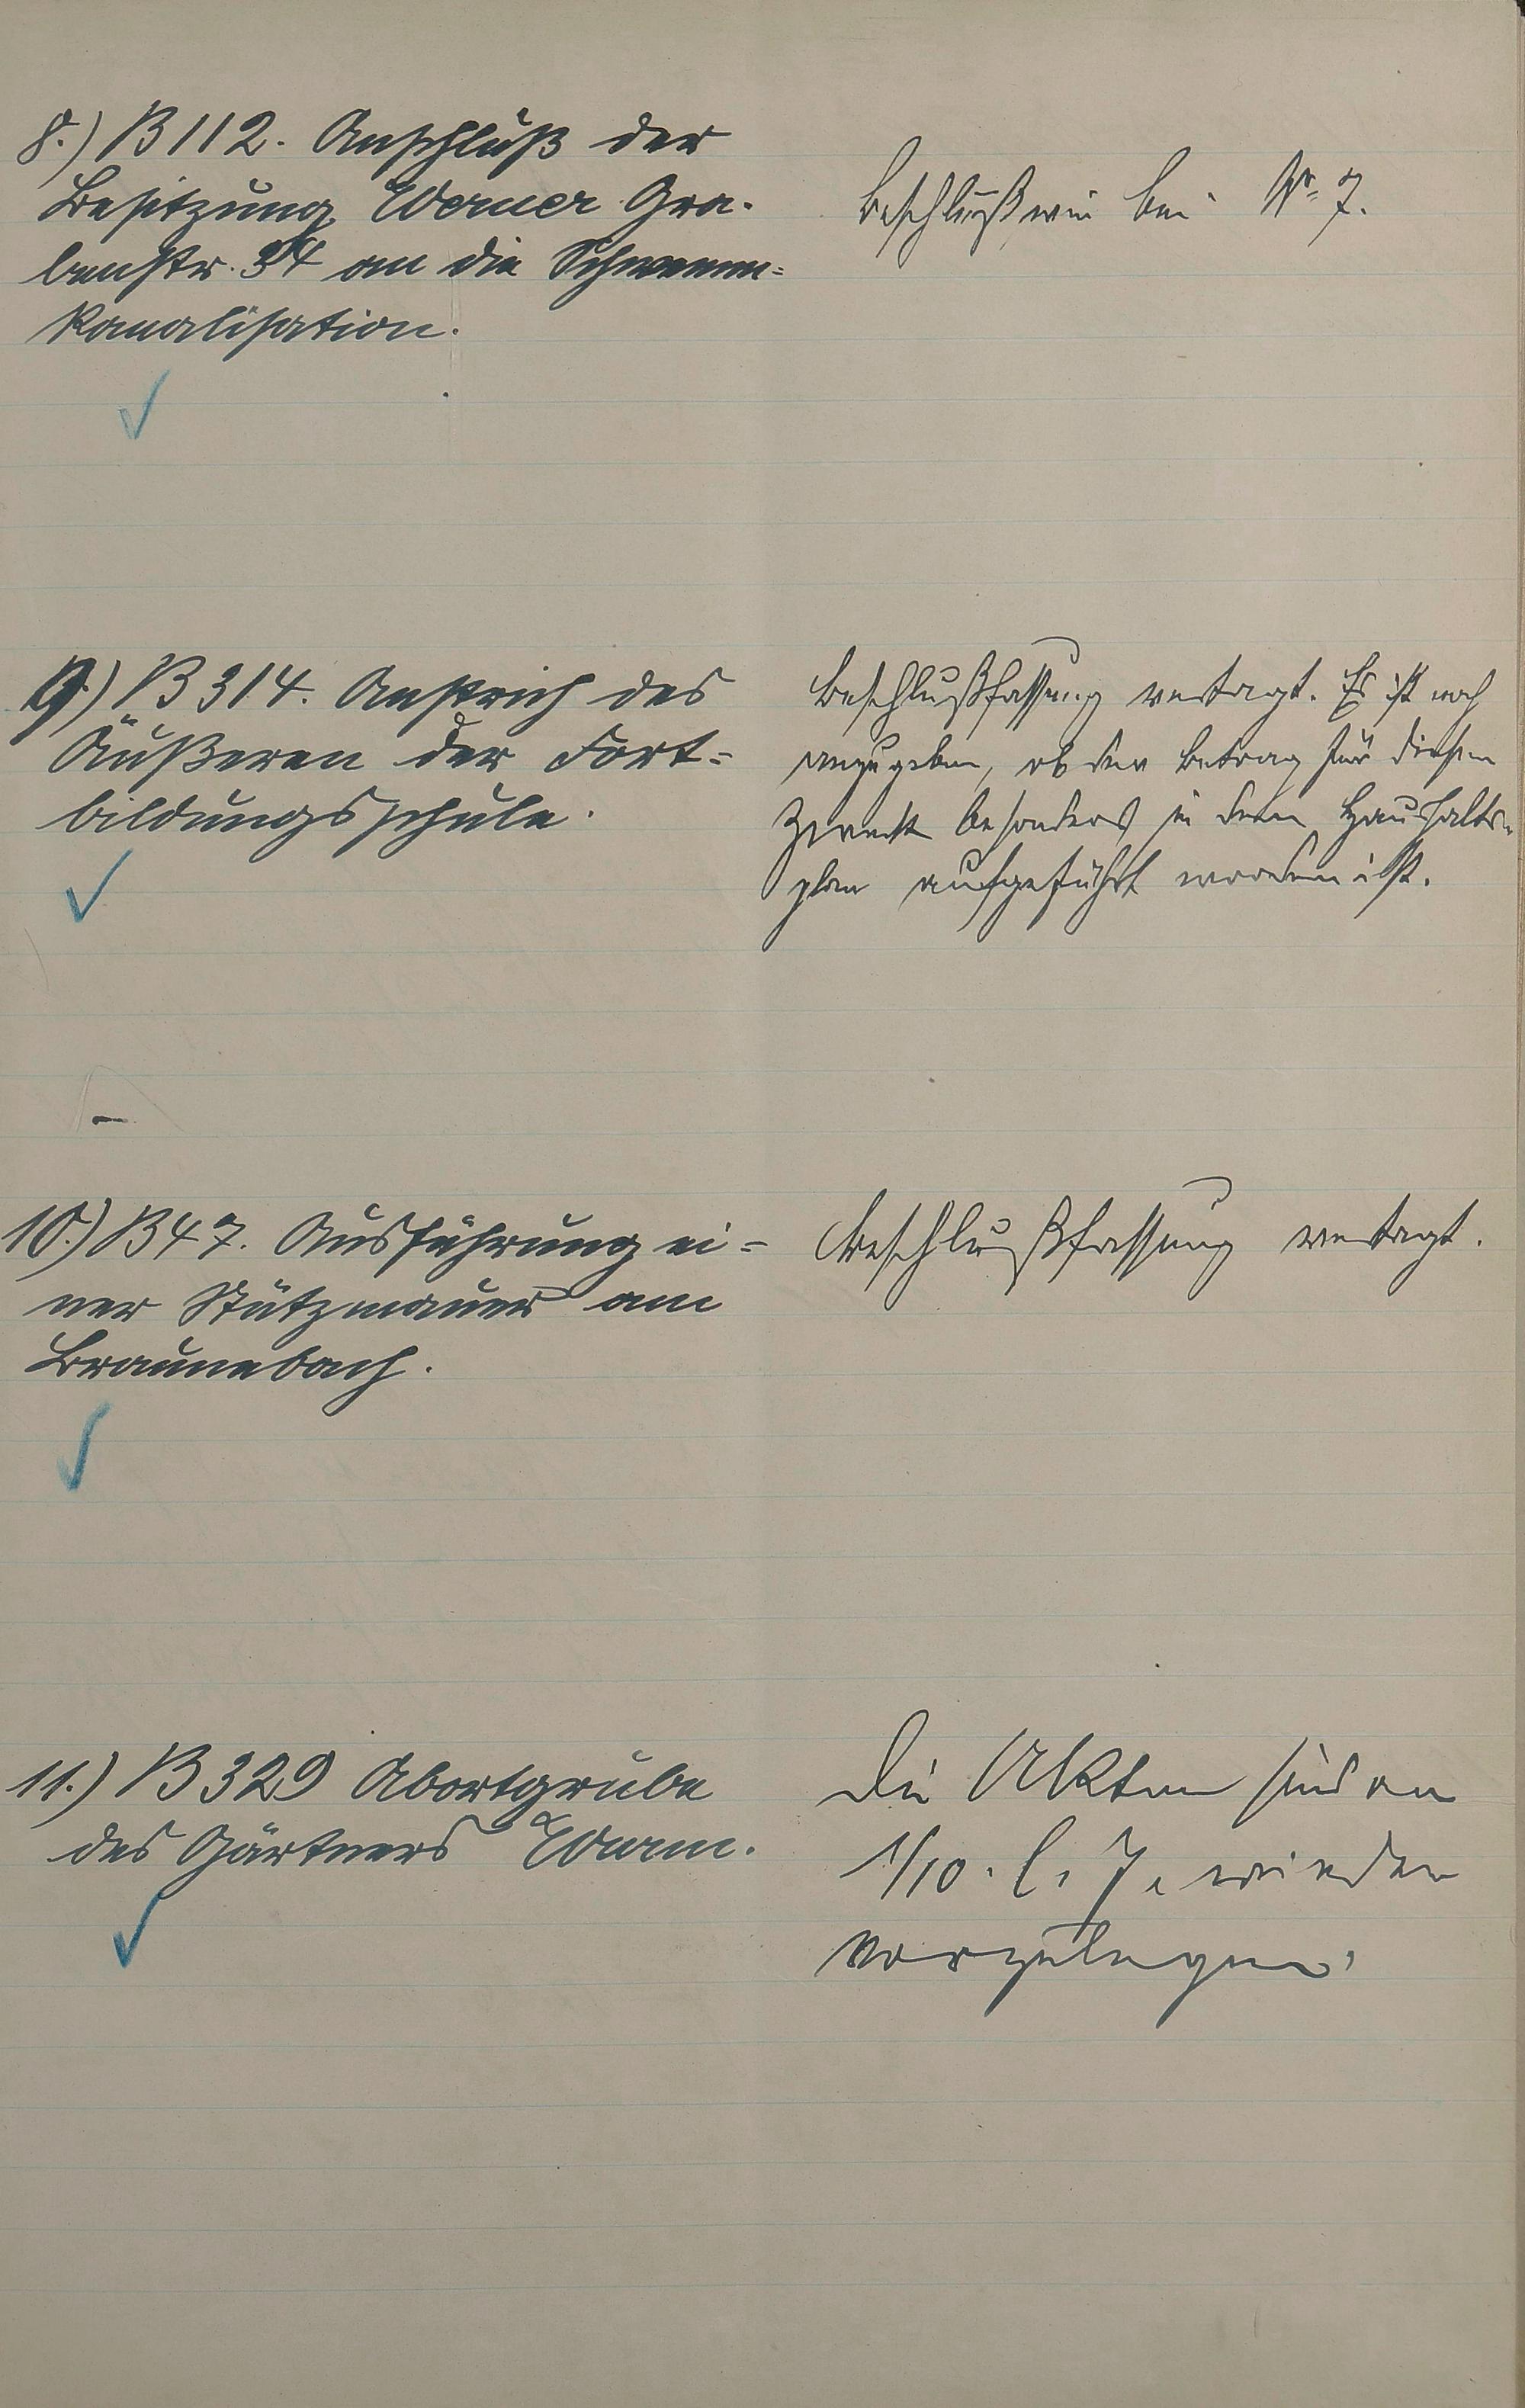 8.) B 112. Anschluß der
Besitzung Werner Gra-
benstr. 34 an die Schwemm=
kanalisation.
Beschluß wie bei Nr. 7.
9.) B 314. Anstrich des
Äußeren der Fort=
bildungsschule.
Beschlußfassung vertagt. Es ist noch
anzugeben, ob der Betrag für diesen
Zweck besonders in dem Haushalts=
plan aufgeführt worden ist.
10.) B 47. Ausführung ei=
ner Stützmauer am
Braunebach.
Beschlußfassung vertagt.
11.) B 329 Abortgrube
des Gärtners
Die Akten sind am
1/10. l. J. wieder
vorzulegen.